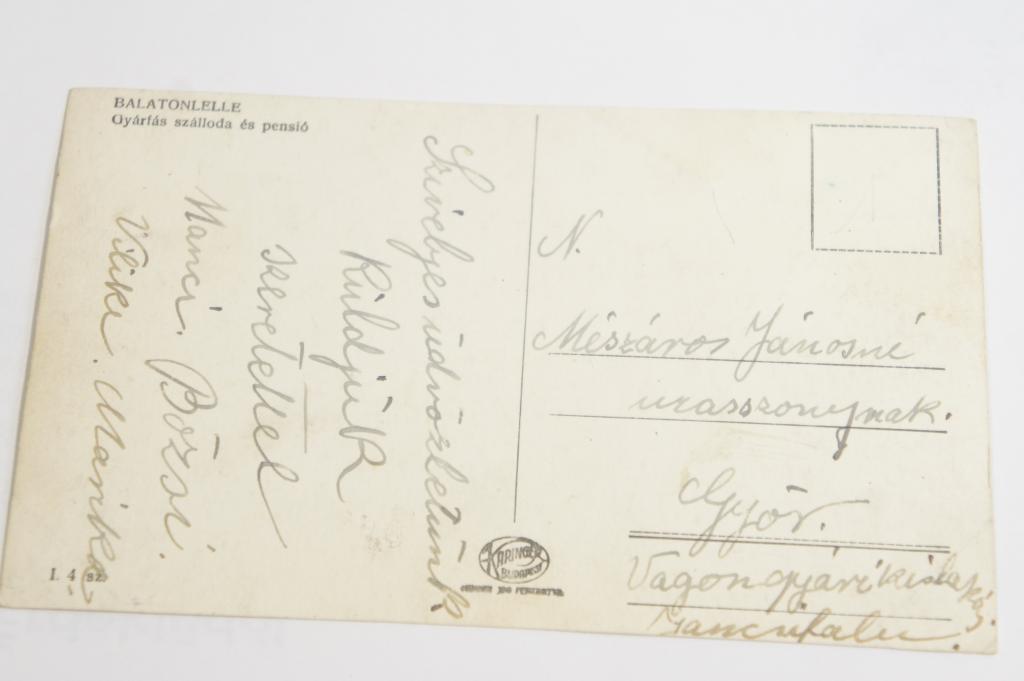 BALATONLELLE
Gyárfás szálloda és pensió
Szívélyes üdvözletünk
küldjük
szeretettel
Manci. Bözsi.
Viliki. Marika
I. 4 sz.
N.
Mészáros Jánosné
urasszonynak.
Győr.
Vagongyári kislakás.
KARINGER
BUDAPEST
MINDEN JOG FENNTARTVA